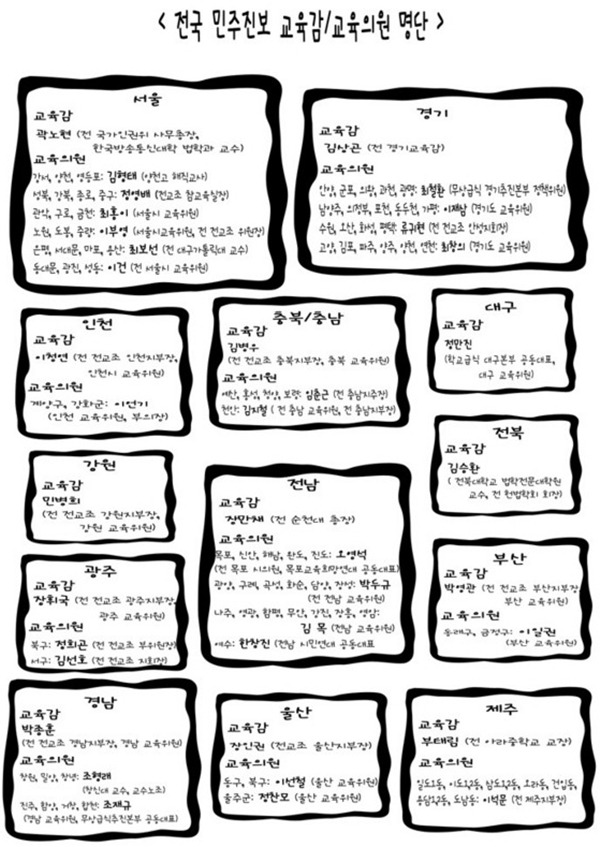 < 전국 민주진보 교육감/교육의원 명단 >
서울
교육감
곽노현 (전 국가인권위 사무총장,
한국방송통신대학 법학과 교수)
교육의원
강서, 양천, 영등포: 김형태 (양천고 해직교사)
성북, 강북, 종로, 중구: 정영배 (전교조 참교육실장)
관악, 구로, 금천: 최홍이 (서울시 교육위원)
노원, 도봉, 중랑: 이부영 (서울시교육위원, 전 전교조 위원장)
은평, 서대문, 마포, 용산: 최보선 (전 대구가톨릭대 교수)
동대문, 광진, 성동: 이건 (전 서울시 교육위원)
경기
교육감
김상곤 (전 경기교육감)
교육의원
안양, 군포, 의왕, 과천, 광명: 최철환 (무상급식 경기추진본부 정책위원)
남양주, 의정부, 포천, 동두천, 가평: 이재삼 (경기도 교육위원)
수원, 오산, 화성, 평택: 류귀현 (전 전교조 안성지회장)
고양, 김포, 파주, 양주, 연천: 최창의 (경기도 교육위원)
인천
교육감
이청연 (전 전교조 인천지부장,
인천시 교육위원)
교육의원
계양구, 강화군: 이언기
(인천 교육위원, 부의장)
충북/충남
교육감
김병우
(전 전교조 충북지부장, 충북 교육위원)
교육의원
예산, 홍성, 청양, 보령: 임춘근 (전 충남지부장)
천안: 김지철 ( 전 충남 교육위원, 전 충남지부장)
대구
교육감
정만진
(학교급식 대구본부 공동대표,
대구 교육위원)
강원
교육감
민병희
(전 전교조 강원지부장,
강원 교육위원)
전남
교육감
장만채 (전 순천대 총장)
교육의원
목포, 신안, 해남, 완도, 진도: 오영석
(전 목포 시의원, 목포교육희망연대 공동대표)
광양, 구례, 곡성, 화순, 담양, 장성: 박두규
(전 전남 교육위원)
나주, 영광, 함평, 무안, 강진, 장흥, 영암:
김 목 (전남 교육위원)
여수: 한창진 (전남 시민연대 공동대표
전북
교육감
김승환
( 전북대학교 법학전문대학원
교수, 전 헌법학회 회장)
광주
교육감
장휘국 (전 전교조 광주지부장,
광주 교육위원)
교육의원
북구: 정희곤 (전 전교조 부위원장)
서구: 김선호 (전 전교조 지회장)
부산
교육감
박영관 (전 전교조 부산지부장
부산 교육위원)
교육의원
동래구, 금정구: 이일권
(부산 교육위원)
경남
교육감
박종훈
(전 전교조 경남지부장, 경남 교육위원)
교육의원
창원, 밀양, 창녕: 조형래
(창신대 교수, 교수노조)
진주, 함양, 거창, 합천: 조재규
(경남 교육위원, 무상급식추진본부 공동대표)
울산
교육감
장인권 (전교조 울산지부장)
교육의원
동구, 북구: 이선철 (울산 교육위원)
울주군: 정찬모 (울산 교육위원)
제주
교육감
부태림 (전 아라중학교 교장)
교육의원
일도1동, 이도1,2동, 삼도1,2동, 오라동, 건입동,
용담1,2동, 도남동: 이석문 (전 제주지부장)